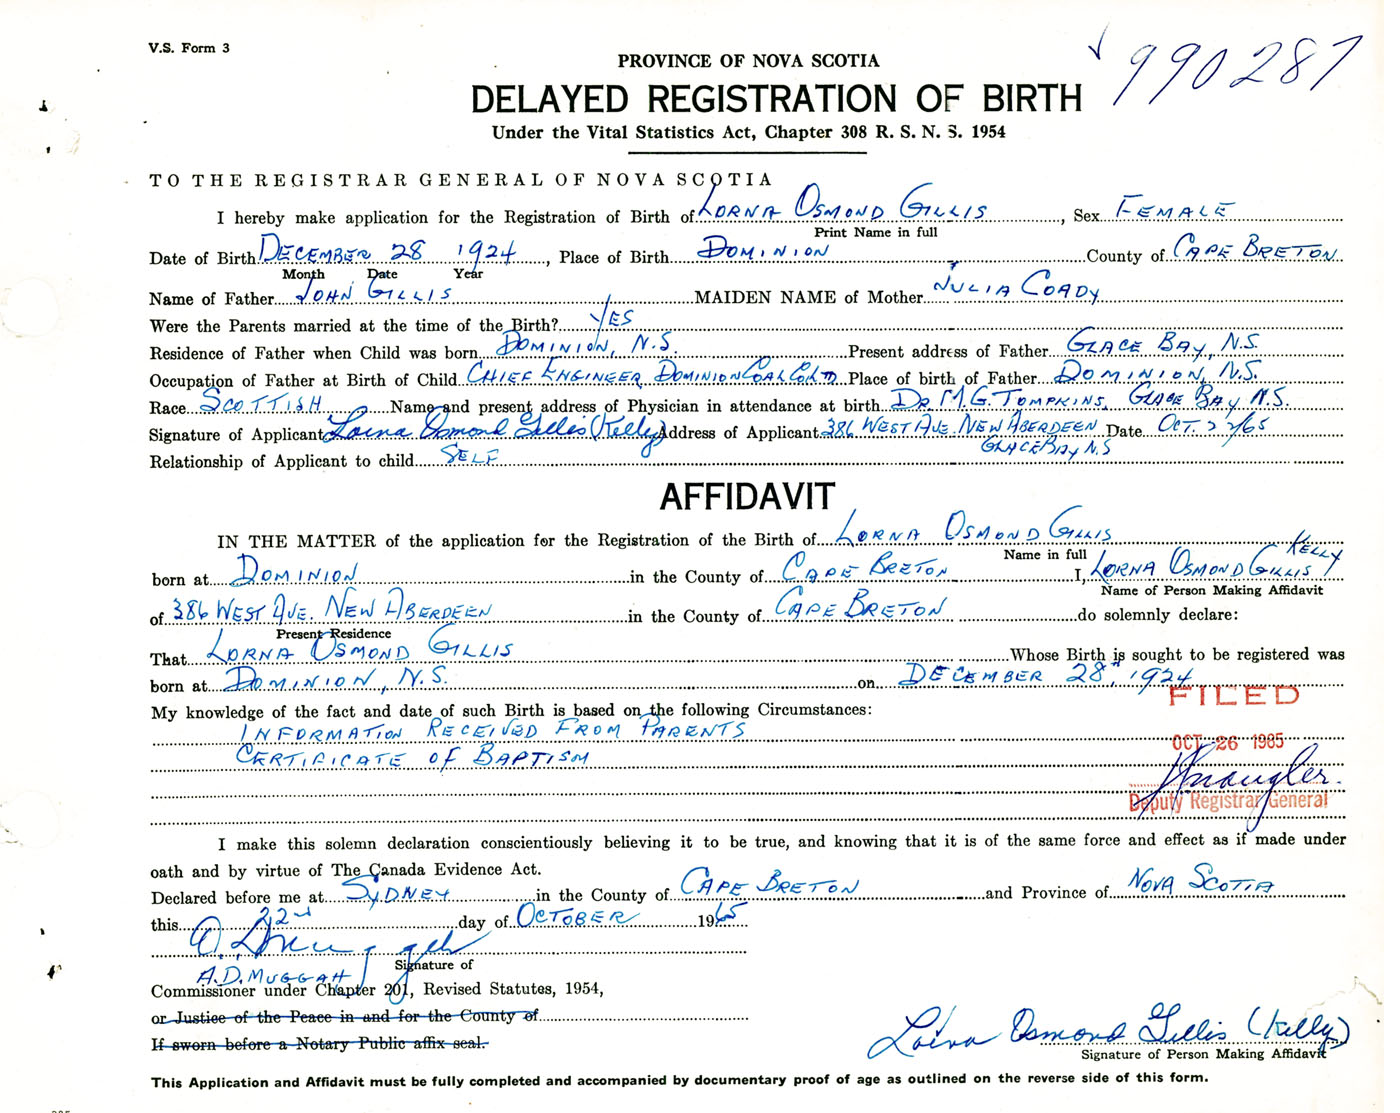 V.S. Form 3
990287
PROVINCE OF NOVA SCOTIA
DELAYED REGISTRATION OF BIRTH
Under the Vital Statistics Act, Chapter 308 R. S. N. S. 1954
TO THE REGISTRAR GENERAL OF NOVA SCOTIA
I hereby make application for the Registration of Birth of LORNA OSMOND GILLIS, Sex FEMALE
Print Name in full
Date of Birth DECEMBER 28 1924, Place of Birth DOMINION County of CAPE BRETON
Month Date Year
Name of Father JOHN GILLIS MAIDEN NAME of Mother JULIA COADY
Were the Parents married at the time of the Birth? YES
Residence of Father when Child was born DOMINION, N.S. Present address of Father GLACE BAY, N.S.
Occupation of Father at Birth of Child CHIEF ENGINEER, DOMINION COAL CO LTD Place of birth of Father DOMINION, N.S.
Race SCOTTISH Name and present address of Physician in attendance at birth DR. M.G. TOMPKINS, GLACE BAY N.S.
Signature of Applicant Lorna Osmond Gillis (Kelly) Address of Applicant 386 WEST AVE. NEW ABERDEEN Date OCT. 22/65
GLACE BAY N.S
Relationship of Applicant to child SELF
AFFIDAVIT
IN THE MATTER of the application for the Registration of the Birth of LORNA OSMOND GILLIS
Name in full
KELLY
born at DOMINION in the County of CAPE BRETON I, LORNA OSMOND GILLIS
Name of Person Making Affidavit
of 386 WEST AVE. NEW ABERDEEN in the County of CAPE BRETON do solemnly declare:
Present Residence
That LORNA OSMOND GILLIS Whose Birth is sought to be registered was
born at DOMINION, N.S. on DECEMBER 28, 1924
FILED
My knowledge of the fact and date of such Birth is based on the following Circumstances:
INFORMATION RECEIVED FROM PARENTS
OCT 26 1965
CERTIFICATE OF BAPTISM
Deputy Registrar General
I make this solemn declaration conscientiously believing it to be true, and knowing that it is of the same force and effect as if made under
oath and by virtue of The Canada Evidence Act.
Declared before me at SYDNEY in the County of CAPE BRETON and Province of NOVA SCOTIA
this 22nd day of OCTOBER 1965
Signature of
A.D. MUGGAH
Commissioner under Chapter 201, Revised Statutes, 1954,
or Justice of the Peace in and for the County of
If sworn before a Notary Public affix seal.
Lorna Osmond Gillis (Kelly)
Signature of Person Making Affidavit
This Application and Affidavit must be fully completed and accompanied by documentary proof of age as outlined on the reverse side of this form.